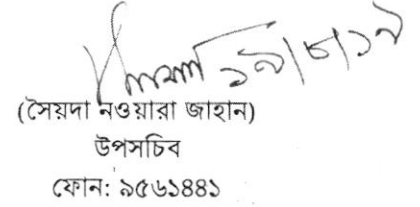 ১৯/৮/১৯
(সৈয়দা নওয়ারা জাহান)
উপসচিব
ফোন: ৯৫৬১৪৪১